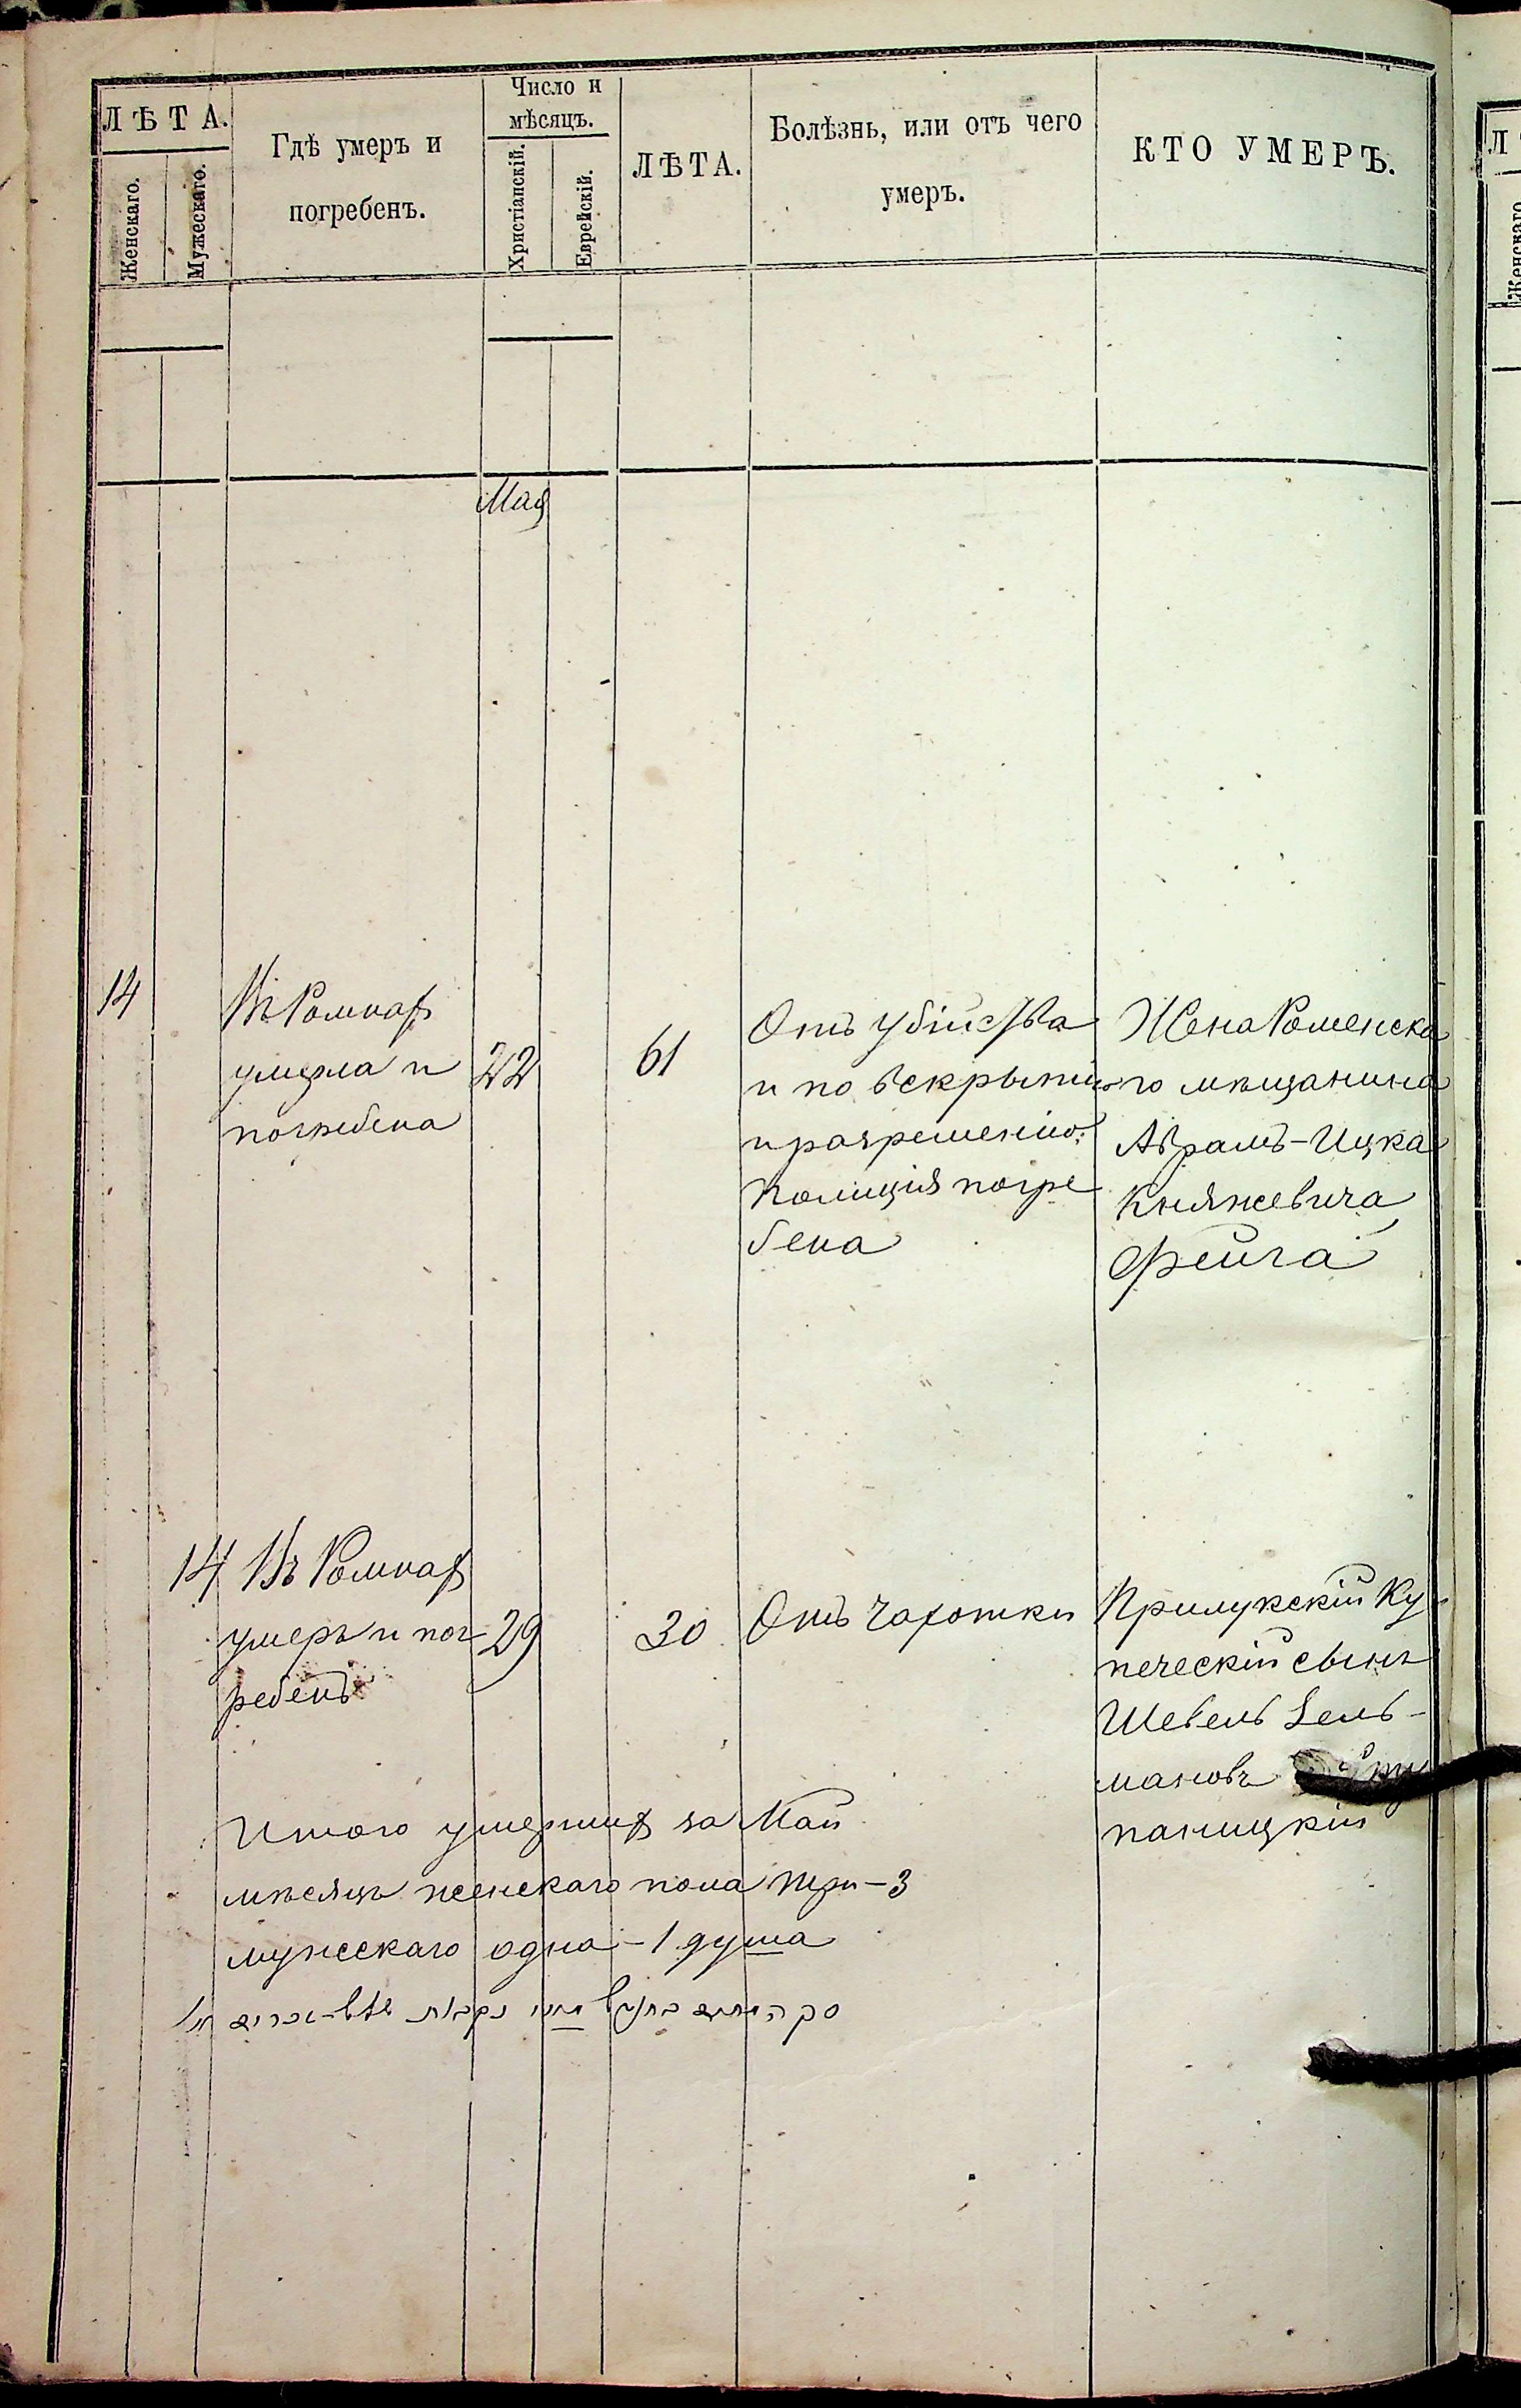 ЛѢТА.
Женскаго.
Мужескаго.
Гдѣ умеръ и
погребенъ.
Число и
мѣсяцъ.
Христіанскій.
Еврейскій.
ЛѢТА.
Болѣзнь, или отъ чего
умеръ.
КТО УМЕРЪ.
Мая
14
Въ Ромнах
умерла и
погребена
22
61
Отъ убійства
и по вскрытіи
и разрешенію
Полиція погре
бена
Жена Роменска
го мѣщанина
Абрамъ-Ицка
Княжевича
Фейга
14
Въ Ромнах
умеръ и пог
ребенъ
29
30
Отъ чахотки
Прилукскій Ку
печескій сынъ
Шевель Зель-
мановъ
паницкій
Итого умерших за Май
мѣсяцъ женскаго пола три-3
мужескаго одна-1 душа